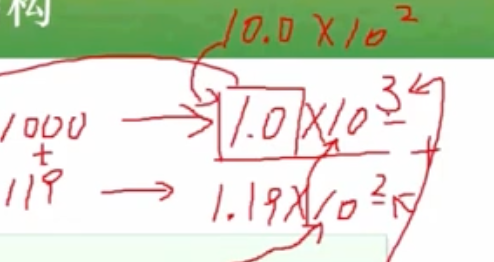 构
10.0 × 10²
1000 → 1.0 × 10³
+
119 → 1.19 × 10²